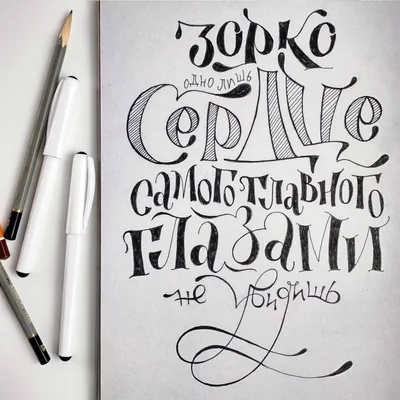 Зорко
одно лишь
сердце
самого главного
глазами
не увидишь